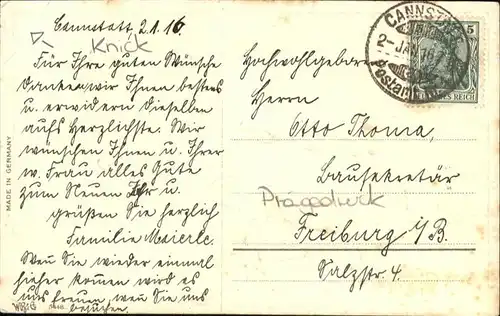 Cannstatt, 2.1.16.
Knick
Für Ihre guten Wünsche
danken wir Ihnen bestens
u. erwidern dieselben
aufs Herzlichste. Wir
wünschen Ihnen u. Ihrer
w. Frau alles Gute
zum Neuen Jahr u.
grüßen Sie herzlich
Familie Maierle.
Wen Sie wieder einmal
hieher kommen wird es
uns freuen, wen Sie uns
besuchen.
MADE IN GERMANY
CANNSTATT
2-JAN 16
Postamt
5
REICH
Hochwohlgeboren
Herrn
Otto Thoma,
Bausekretär
Prägedruck
Freiburg i/B.
Salzstr. 4.